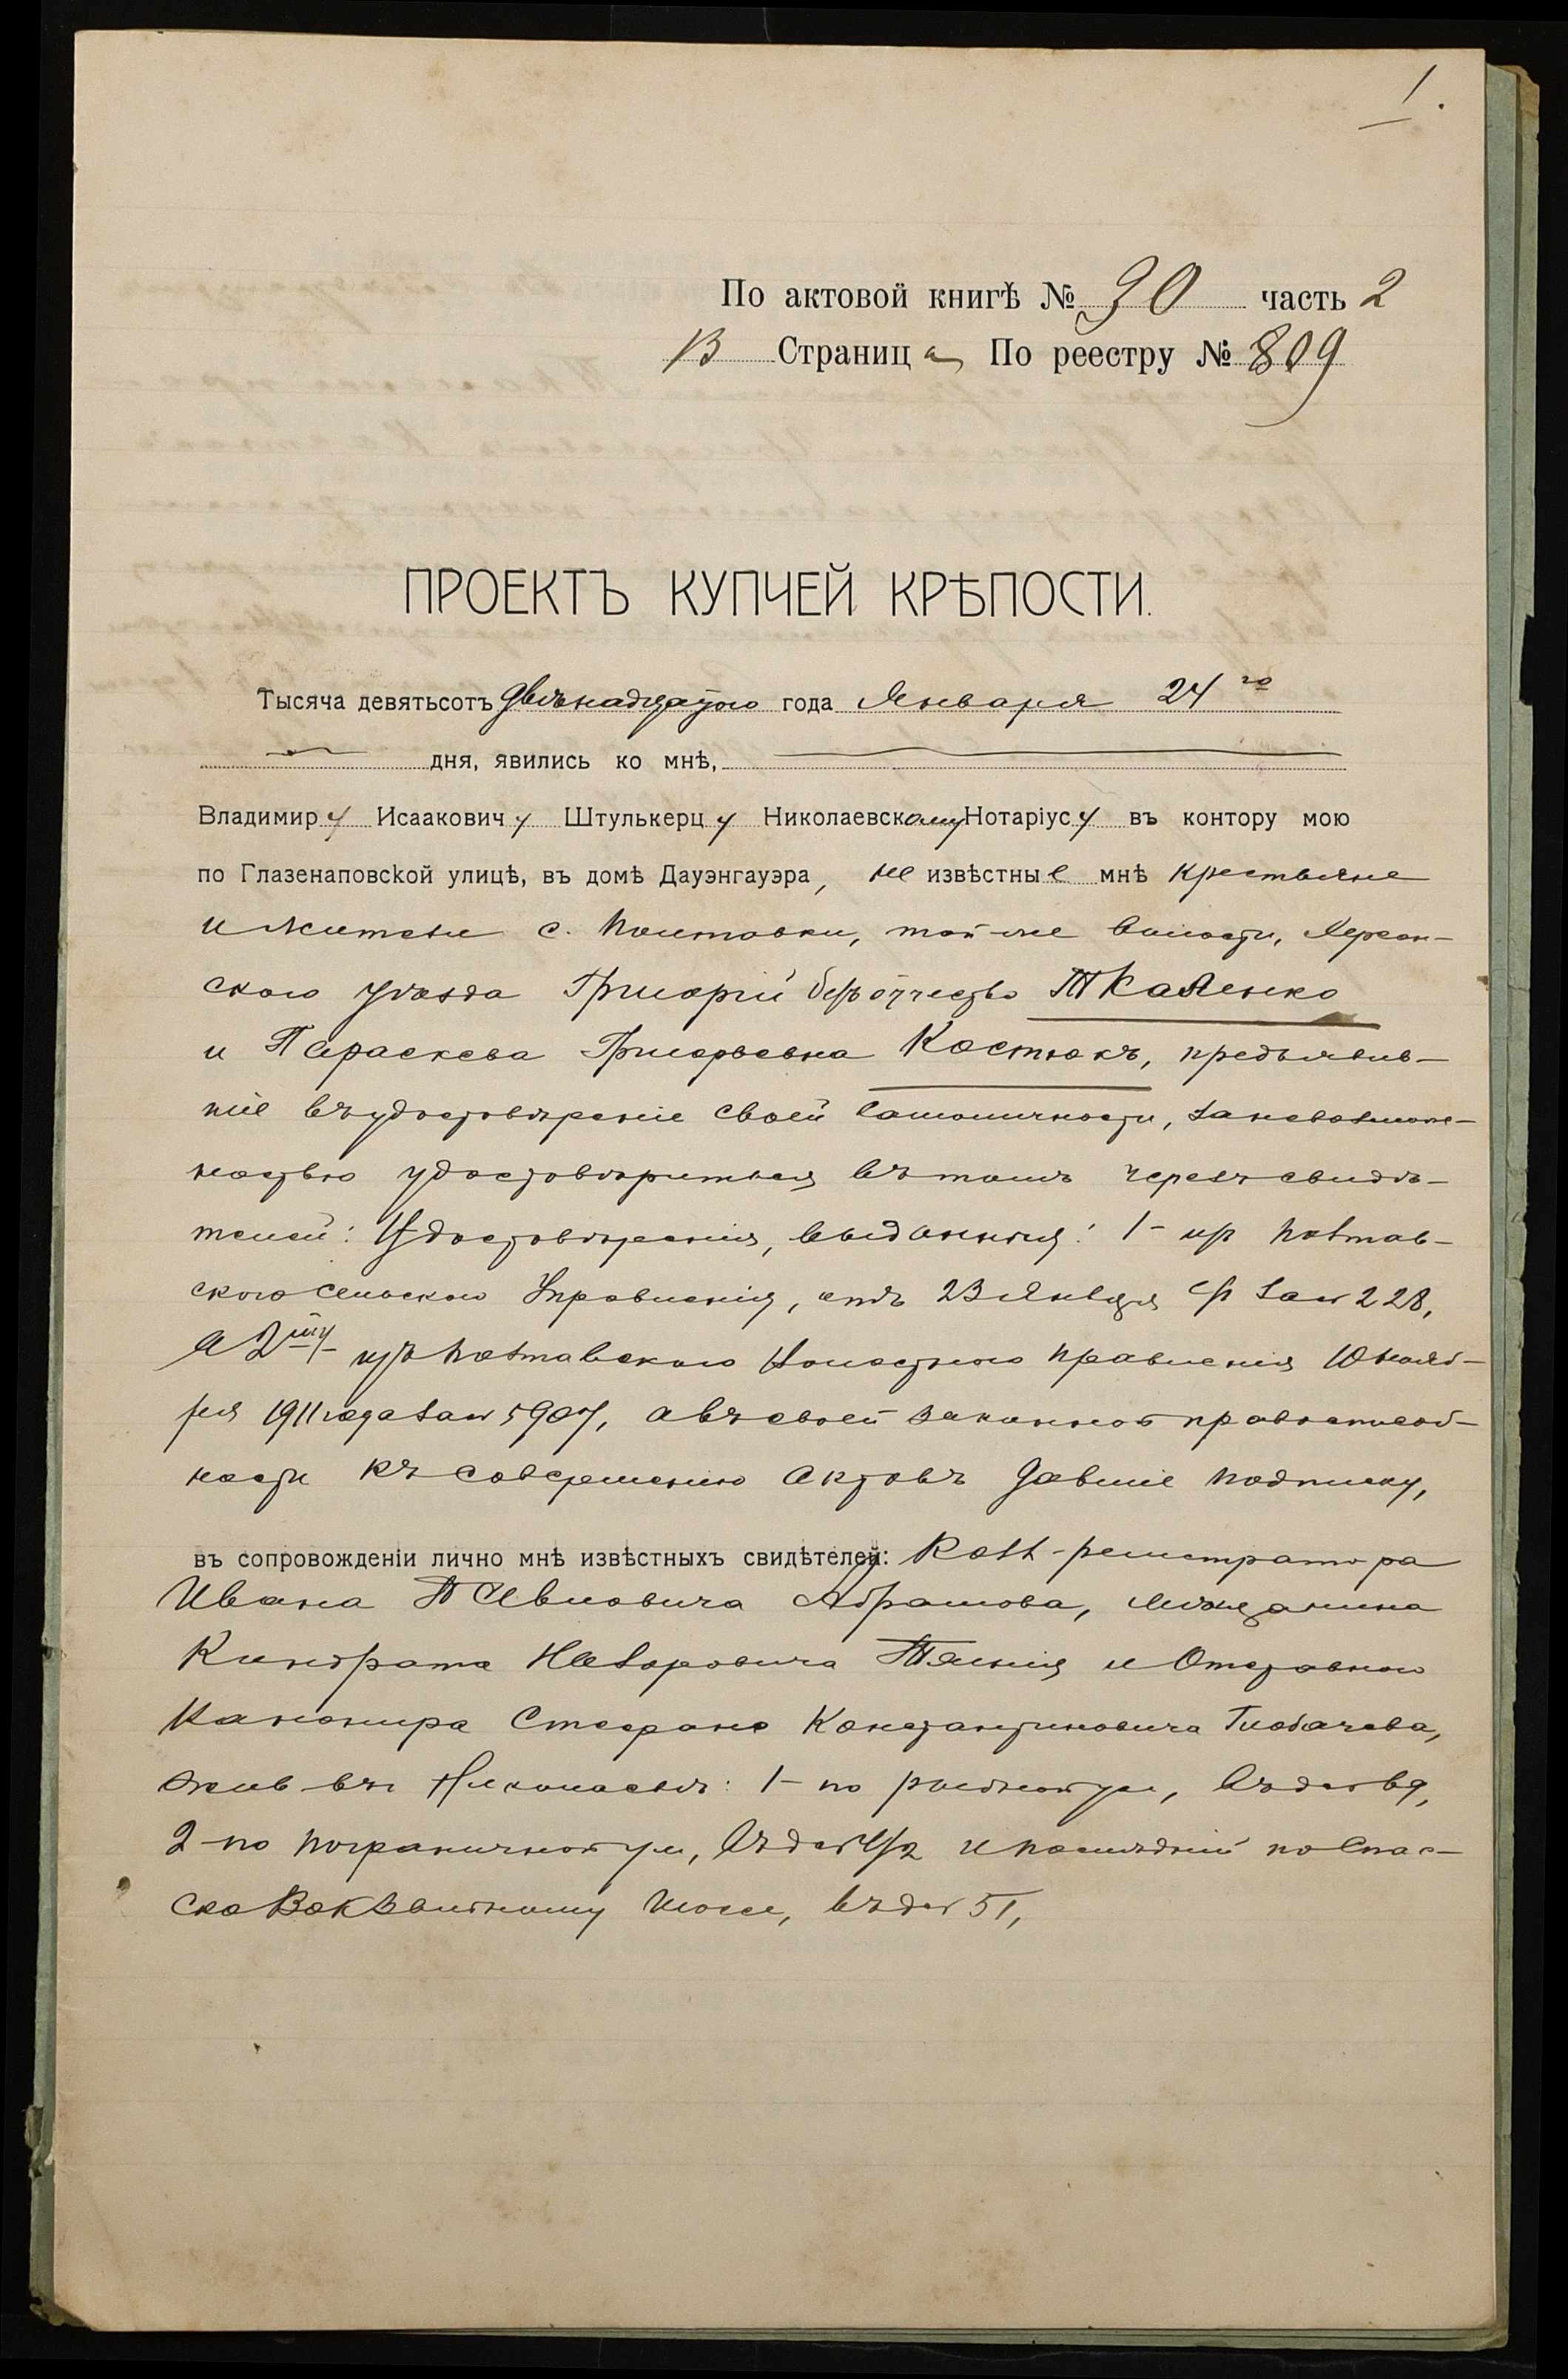 1.
По актовой книгѣ № 90 часть 2
13 Страница По реестру № 809
ПРОЕКТЪ КУПЧЕЙ КРѢПОСТИ.
Тысяча девятьсотъ двѣнадцатого года Января 24го
дня, явились ко мнѣ,
Владимиру Исааковичу Штулькерцу Николаевскому Нотаріусу въ контору мою
по Глазенаповской улицѣ, въ домѣ Дауэнгауэра, не извѣстные мнѣ крестьяне
и жители с. той-же волости, Херсон-
скаго уѣзда Григорій безъ отчества Ткаленко
и Параскева Григорьевна Костюкъ, предъявив-
шіе въ удостовѣреніе своей самоличности, за невозмож-
ностью удостовѣриться въ томъ черезъ свидѣ-
телей: Удостовѣренія, выданныя: 1- из
скаго Сельскаго Управленія, отъ 23 Января с/г за № 228,
а 2му изъ Волостного Правленія 10 Нояб-
ря 1911 года за № 5907, а въ своей законной правоспособ-
ности къ совершенію актовъ давшіе подписку,
въ сопровожденіи лично мнѣ извѣстныхъ свидѣтелей: Колл-регистратора
Ивана Павловича Абрамова, мѣщанина
Киндрата Назаровича и Отставного
Канонира Стефана Константиновича Глобачева,
жив въ Николаевѣ: 1- по Рыбной ул, въ д №
2-по Пограничной ул, въ д № и послѣдній по Спас-
ско шоссе, въ д № 51,